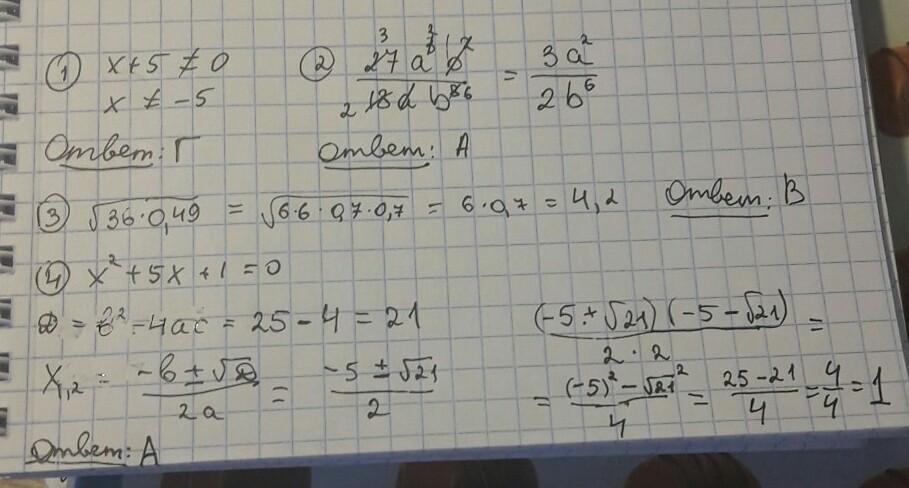 ① x+5 ≠ 0
x ≠ -5
Ответ: Г
② 27a³b² / 18ab⁸ = 3a² / 2b⁶
Ответ: А
③ √36·0,49 = √6·6·0,7·0,7 = 6·0,7 = 4,2 Ответ: В
④ x²+5x+1=0
D = b²-4ac = 25-4 = 21
X₁,₂ = -b±√D / 2a = -5±√21 / 2
(-5+√21)(-5-√21) / 2·2 =
= (-5)²-√21² / 4 = 25-21 / 4 = 4/4 = 1
Ответ: А